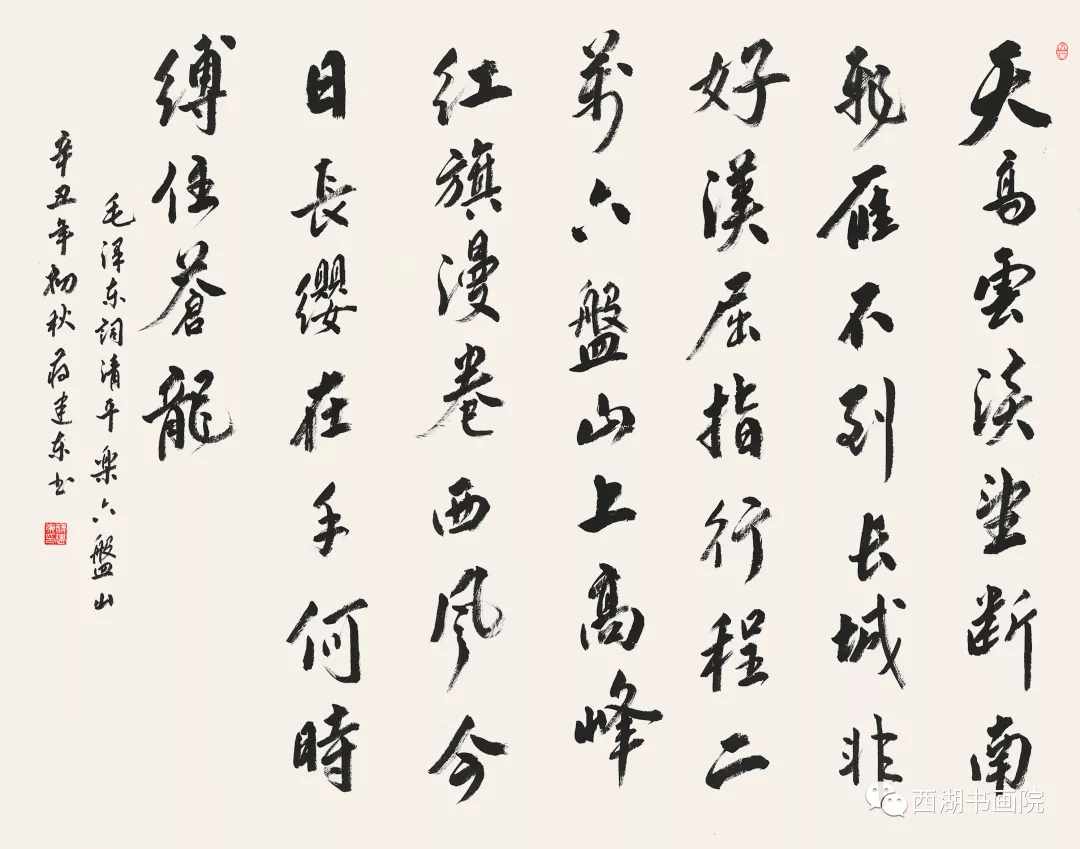 天高雲淡望断南
飛雁不到长城非
好漢屈指行程二
萬六盤山上高峰
红旗漫卷西風今
日長纓在手何時
縛住蒼龍
毛泽东詞清平楽六盤山
辛丑年初秋蒋建东书
西湖书画院